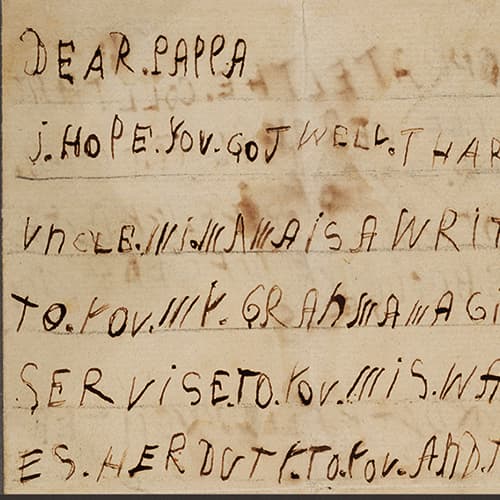 DEAR.PAPPA
J.HOPE.YOU.GOT WELL.THAR
UnCLE.Mi.MAMA iS A WRIT
TO.YOU.MY.GRAnMAMA GI
SERViSE.TO.YOU.MiS.WH
ES.HER DUTY.TO.YOU.AND.T